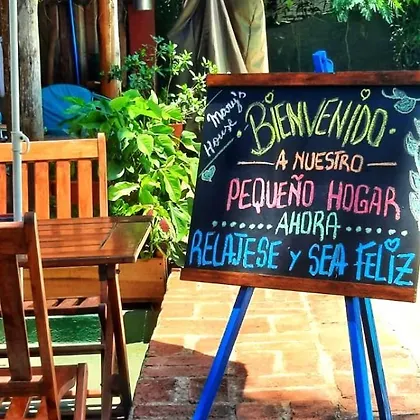 Mary's
House
¡BIENVENIDO!
A NUESTRO
PEQUEÑO HOGAR
AHORA
RELAJESE Y SEA FELIZ